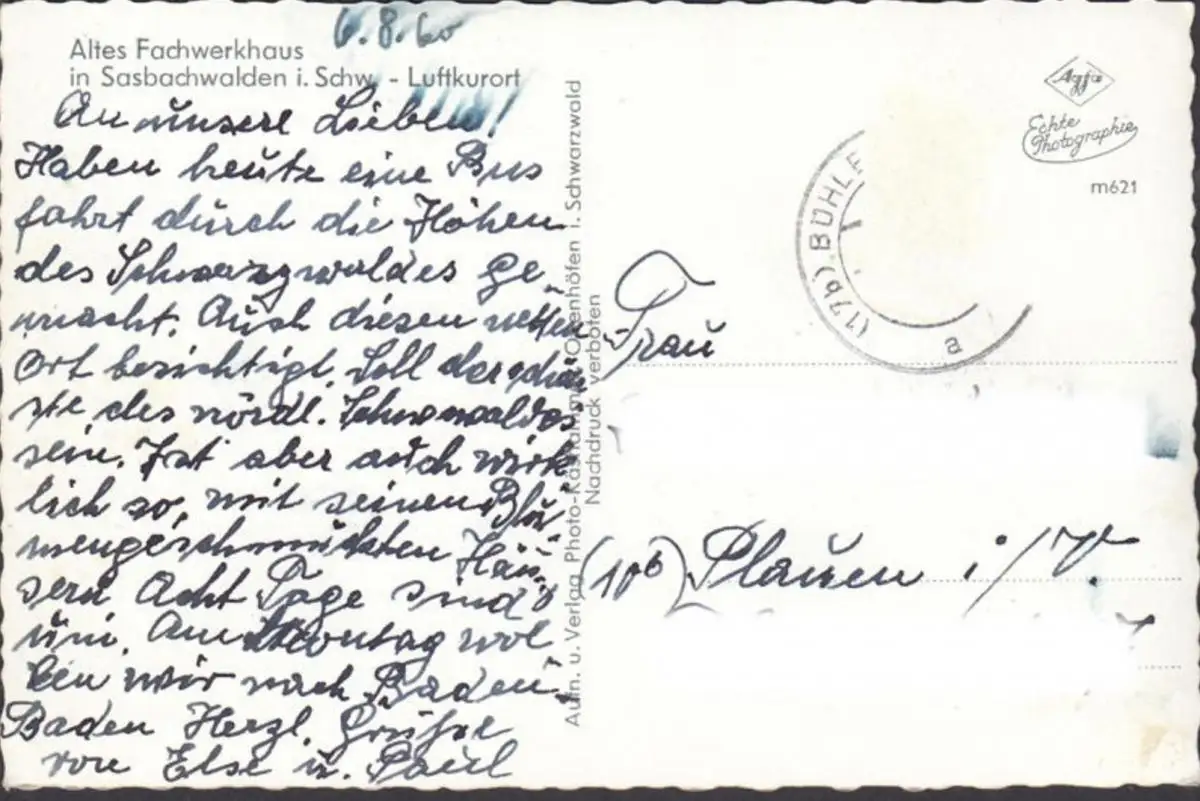 6.8.60
Altes Fachwerkhaus
in Sasbachwalden i. Schw. - Luftkurort
An unsere Lieben!
Haben heute eine Bus
fahrt durch die Höhen
des Schwarzwaldes ge
macht. Auch diesen netten
Ort besichtigt. Soll der schön
ste des nördl. Schwarzwaldes
sein. Ist aber auch wirk
lich so, mit seinen Blu
mengeschmückten Häu
sern Acht Tage sind
um. Am Montag wol
len wir nach Baden
Baden Herzl. Grüße
von Else u. Paul
Aufn. u. Verlag Photo- Ottenhöfen i. Schwarzwald
Nachdruck verboten
Agfa
Echte
Photographie
m621
(17b) BÜHLE
a
Frau
(10b) Plauen i/V.